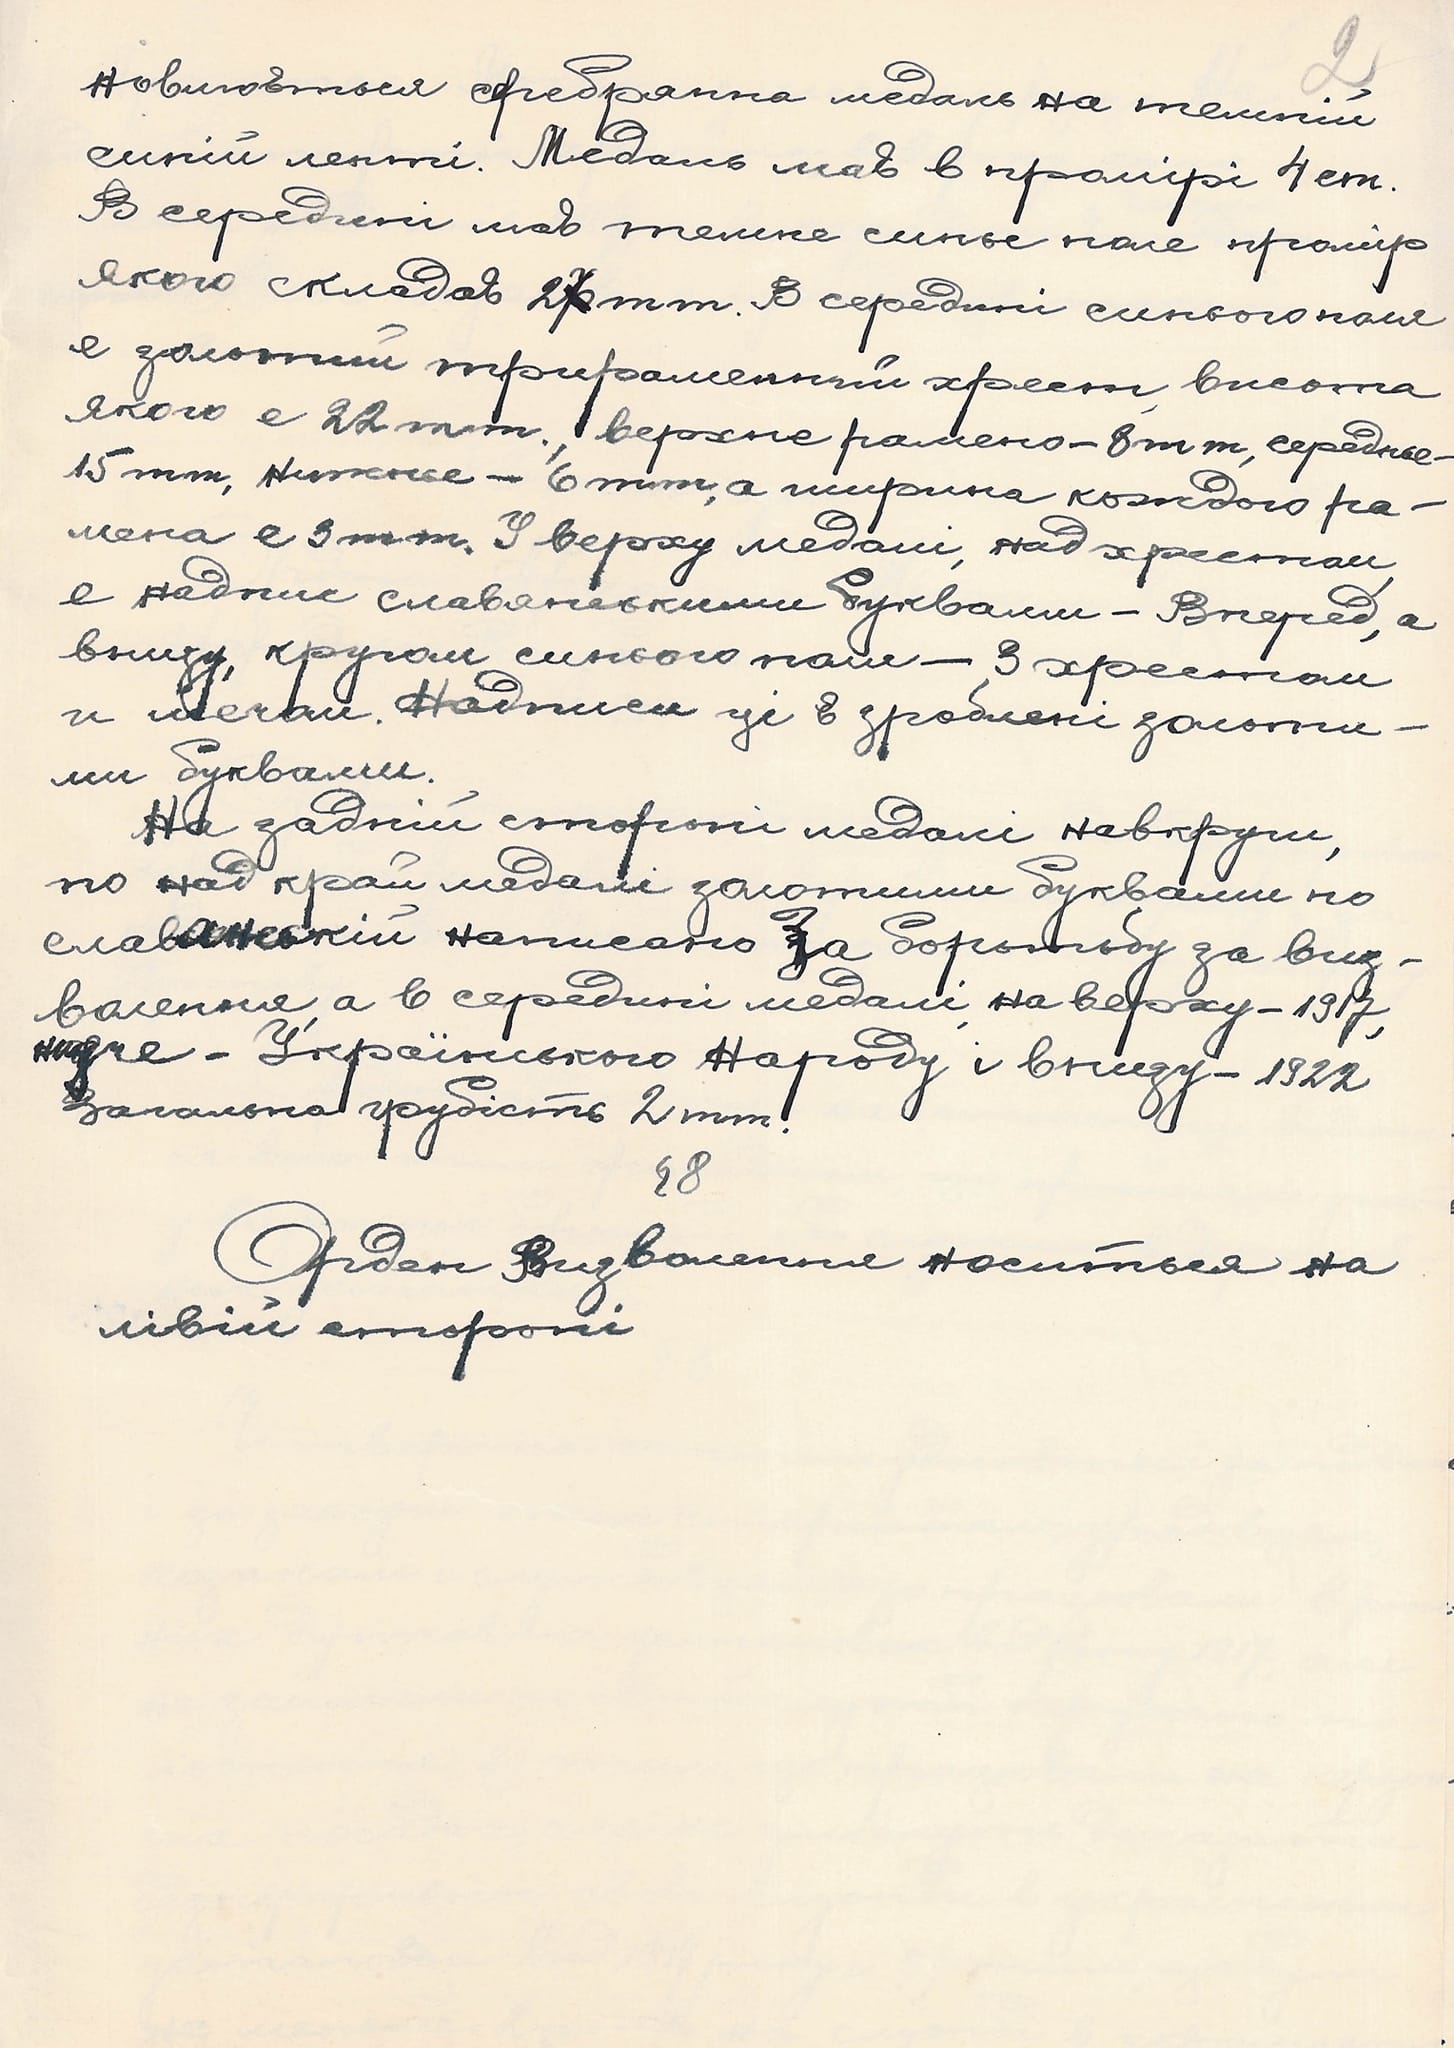 2
новлюється сребрянна медаль на темній
синій ленті. Медаль має в промірі 4 cm.
В середині має темне синьє поле промір
якого складає 27 mm. В середині синього поля
е золотий трираменний хрест, висота
якого е 22 mm., верхнє рамено – 8 mm, середньє –
15 mm, нижньє – 6 mm, а ширина кождого ра–
мена е 3 mm. У верху медалі, над хрестом,
е надпис славянськими буквами – Вперед, а
внизу, кругом синього поля – З хрестом
и мечам. Надписи ці є зроблені золоти–
ми буквами.
На задній стороні медалі навкруги,
по над край медалі золотими буквами по
славянській написано За боротьбу за виз–
волення, а в середині медалі, на верху – 1917,
нидче – Українського Народу і внизу – 1922
Загальна грубість 2 mm.
§ 8
Орден Визволення носиться на
лівій стороні